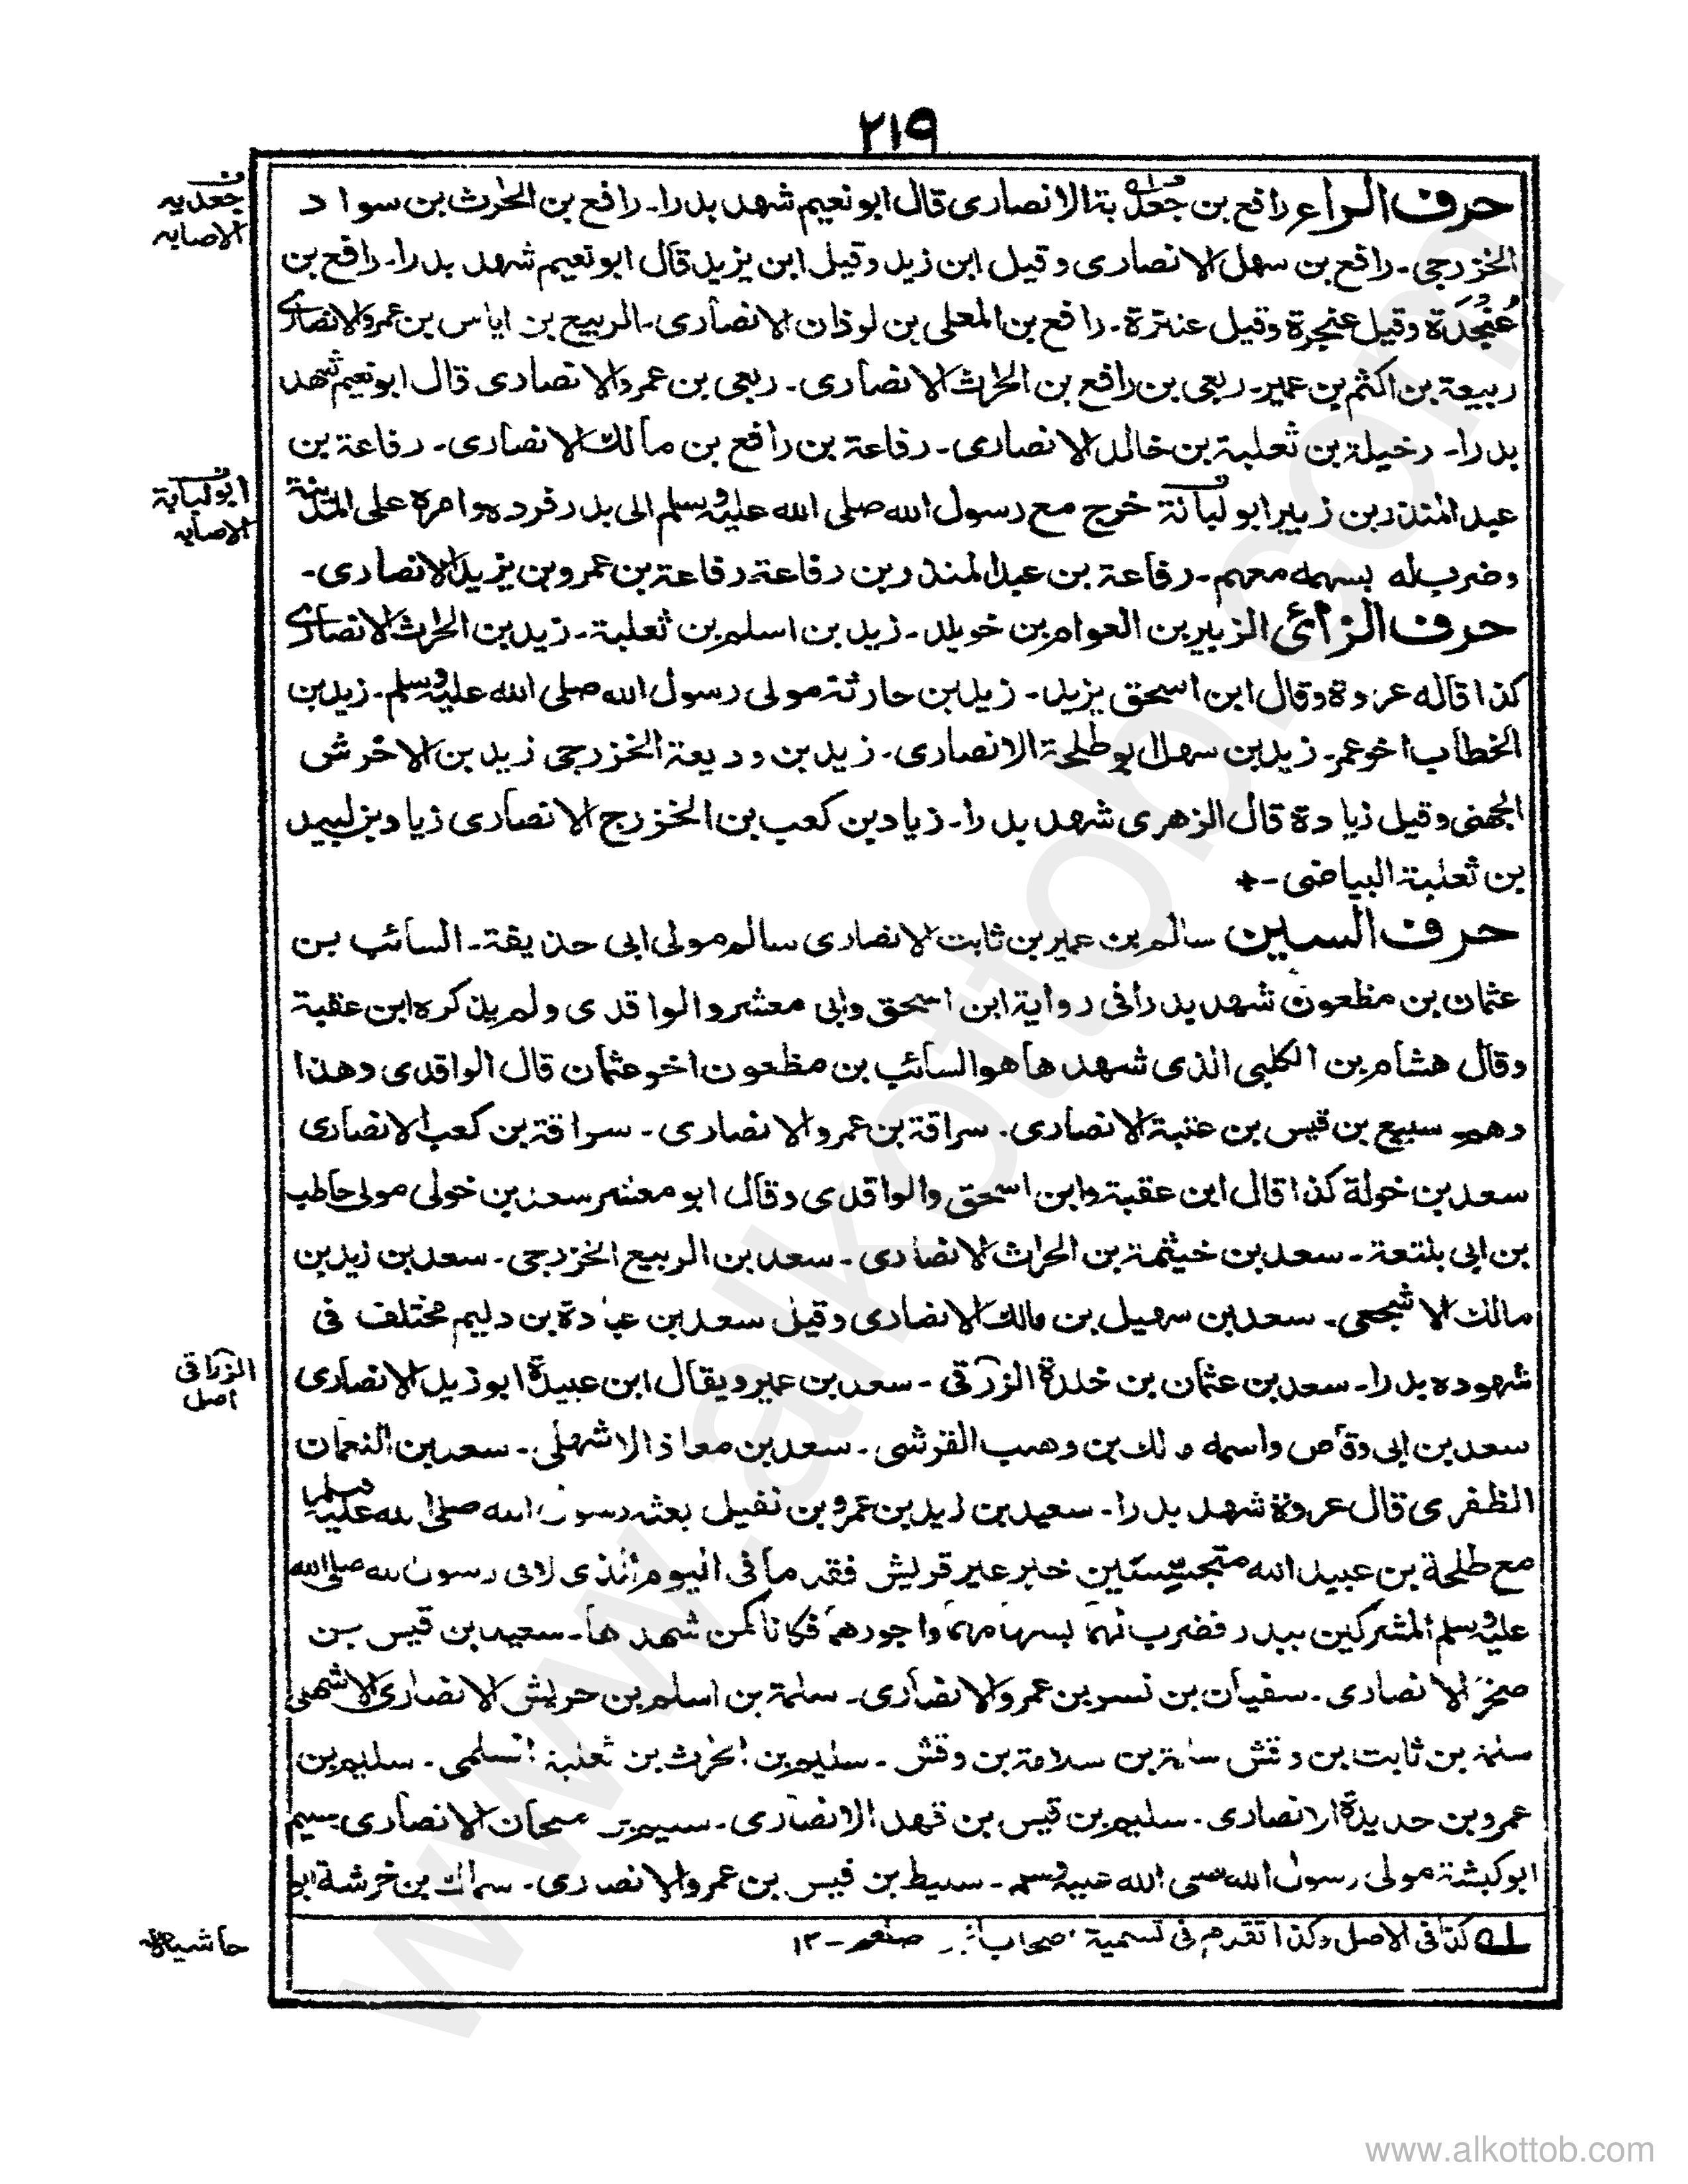 ٢١٩
حرف الراء رافع بن جعدبة الانصاری قال ابو نعیم شهد بدرا۔ رافع بن الحٰرث بن سواد
الخزرجی۔ رافع بن سهل الانصاری وقیل ابن زید وقیل ابن یزید قال ابو نعیم شهد بدرا۔ رافع بن
عُنجُدَة وقیل عنجرة وقیل عنترة۔ رافع بن المعلی بن لوذان الانصاری۔ الربیع بن ایاس بن عمرو الانصاری
ربیعة بن اکثم بن عمیر۔ ربعی بن رافع بن الحٰرث الانصاری۔ ربعی بن عمرو الانصاری قال ابو نعیم شهد
بدرا۔ رخیلة بن ثعلبة بن خالد الانصاری۔ رفاعة بن رافع بن مالك الانصاری۔ رفاعة بن
عبد المنذر بن زبیر ابو لبانة خرج مع رسول الله صلی الله علیه وسلم الی بدر فرده وامره علی المدینة
وضرب له بسهمه معهم۔ رفاعة بن عبد المنذر بن رفاعة۔ رفاعة بن عمرو بن یزید الانصاری۔
حرف الزائ الزبیر بن العوام بن خویلد۔ زید بن اسلم بن ثعلبة۔ زید بن الحٰرث الانصاری
کذا قاله عروة وقال ابن اسحق یزید۔ زید بن حارثة مولی رسول الله صلی الله علیه وسلم۔ زید بن
الخطاب اخو عمر۔ زید بن سهل ابو طلحة الانصاری۔ زید بن ودیعة الخزرجی زید بن الاخرش
الجهنی وقیل زیادة قال الزهری شهد بدرا۔ زیاد بن کعب بن الخزرج الانصاری زیاد بن لبید
بن ثعلبة البیاضی۔
حرف السین سالم بن عمیر بن ثابت الانصاری سالم مولی ابی حذیفة۔ السائب بن
عثمان بن مظعون شهد بدرا فی روایة ابن اسحق وابی معشر والواقدی ولم یذکره ابن عقبة
وقال هشام بن الکلبی الذی شهدها هو السائب بن مظعون اخو عثمان قال الواقدی وهذا
وهم۔ سبیع بن قیس بن عتبة الانصاری۔ سراقة بن عمرو الانصاری۔ سراقة بن کعب الانصاری
سعد بن خولة کذا قال ابن عقبة وابن اسحق والواقدی وقال ابو معشر سعد بن خولی مولی حاطب
بن ابی بلتعة۔ سعد بن خیثمة بن الحٰرث الانصاری۔ سعد بن الربیع الخزرجی۔ سعد بن زید بن
مالك الاشجعی۔ سعد بن سهیل بن مالك الانصاری وقیل سعد بن عبادة بن دلیم مختلف فی
شهوده بدرا۔ سعد بن عثمان بن خلدة الزرقی۔ سعد بن عمیر ویقال ابن عبیدة ابو زید الانصاری
سعد بن ابی وقاص واسمه مالك بن وهب القرشی۔ سعد بن معاذ الاشهلی۔ سعد بن النعمان
الظفری قال عروة شهد بدرا۔ سعید بن زید بن عمرو بن نفیل بعثه رسول الله صلی الله علیه وسلم
مع طلحة بن عبید الله متجسسین خبر عیر قریش فقدما فی الیوم الذی لاقی رسول الله صلی الله
علیه وسلم المشرکین ببدر فضرب لهما بسهامهما واجورهما فکانا کمن شهدها۔ سعید بن قیس بن
صخر الانصاری۔ سفیان بن نسر بن عمرو الانصاری۔ سلمة بن اسلم بن حریش الانصاری الاشهلی
سلمة بن ثابت بن وقش سلمة بن سلامة بن وقش۔ سلیم بن الحٰرث بن ثعلبة السلمی۔ سلیم بن
عمرو بن حدیدة الانصاری۔ سلیم بن قیس بن قهد الانصاری۔ سلیم بن ملحان الانصاری سلیم
ابو کبشة مولی رسول الله صلی الله علیه وسلم۔ سلیط بن قیس بن عمرو الانصاری۔ سماك بن خرشة ابو
ـه کذا فی الاصل وکذا تقدم فی تسمیة
جعدبه
الاصابه
ابو لبابة
الاصابه
الزراقی
اصل
حاشیة
www.alkottob.com
www.alkottob.com